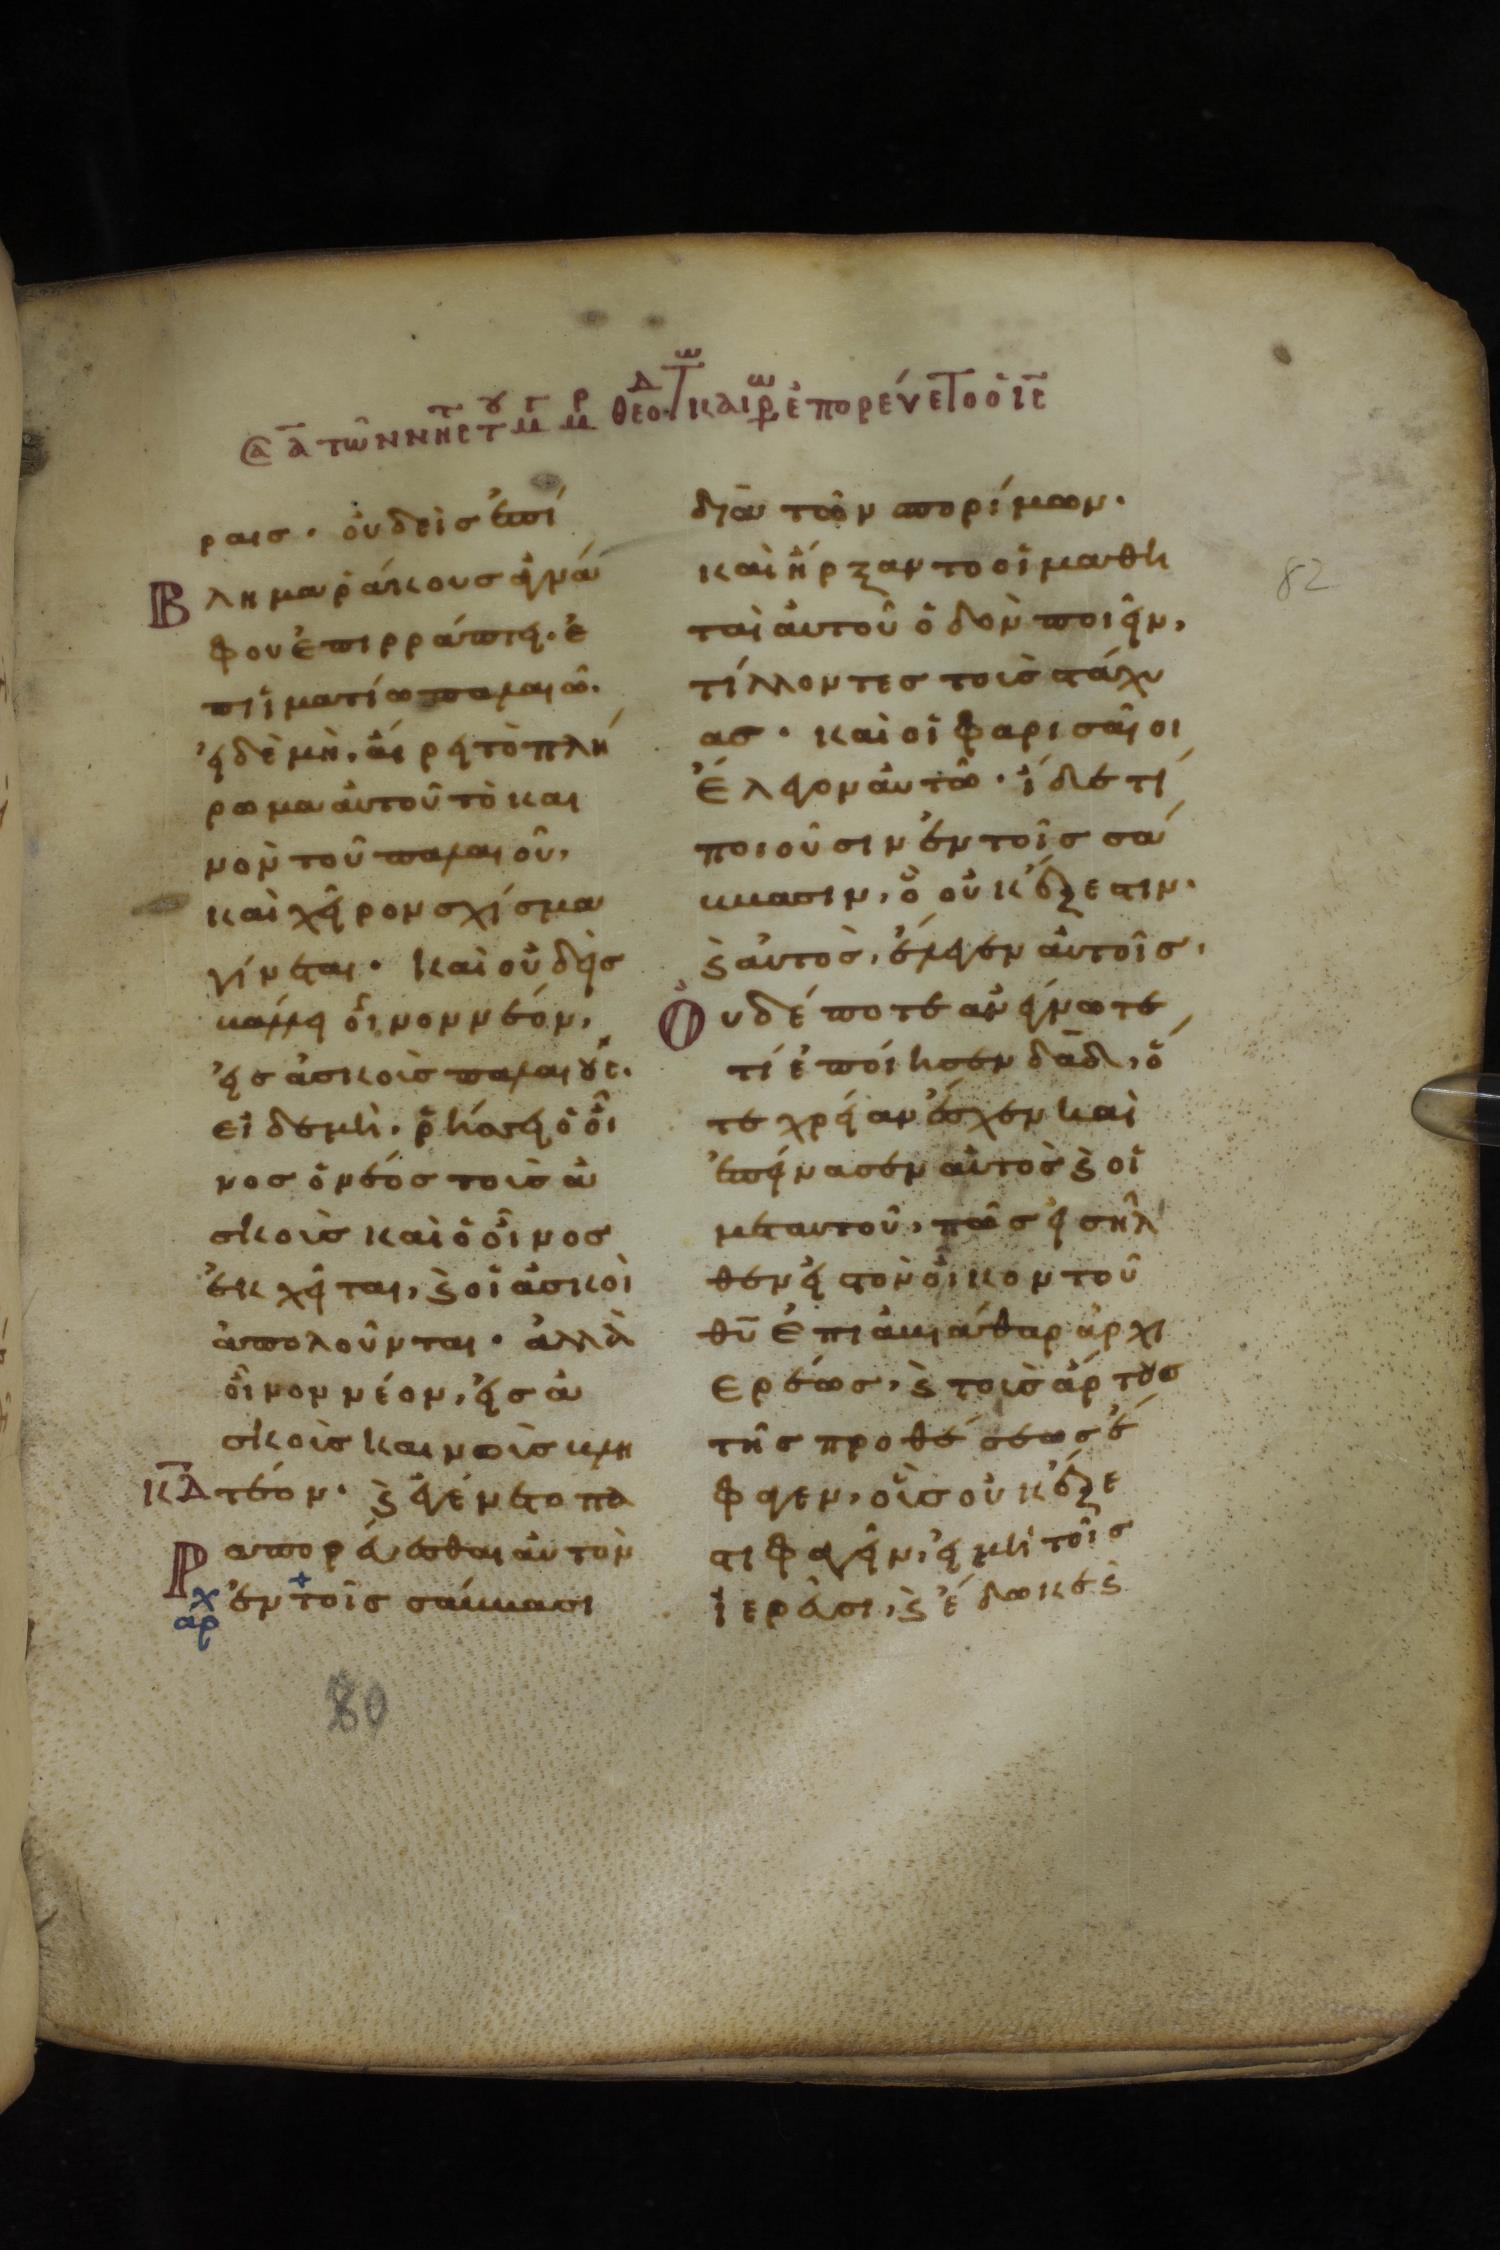 ραισ · ὀυδεὶσ ἐπί
Β λημα ράκουσ ἀγνά
φου ἐπιρράπτει · ἐ
πὶ ἱματίω παλαιῶ ·
εἰ δὲ μὴ, αἴρει τὸ πλή
ρωμα ἀυτοῦ τὸ και
νὸν τοῦ παλαιοῦ,
καὶ χεῖρον σχίσμα
γίνεται · καὶ οὐδεὶσ
βάλλει οἶνον νέον,
εἰσ ἀσκοὺσ παλαιούσ ·
εἰ δὲ μὴ, ῥήσσει ὁ οἶ
νοσ ὁ νέοσ τοὺσ ἀ
σκοὺσ καὶ ὁ οἶνοσ
ἐκχεῖται, ϗ οἱ ἀσκοὶ
ἀπολοῦνται · ἀλλὰ
οἶνον νέον, εἰσ ἀ
σκοὺσ καινοὺσ βλη
ΚΔ τέον · ϗ ἐγένετο πα
Ρ απορεύεσθαι ἀυτὸν
χ ἐν τοῖσ σάββασι
ἀρ
διὰ τῶν σπορίμων ·
καὶ ἤρξαντο οἱ μαθη
ταὶ ἀυτοῦ ὁδὸν ποιεῖν,
τίλλοντεσ τοὺσ στάχυ
ασ · καὶ οἱ φαρισαῖοι
ἔλεγον ἀυτῶ · ἴδε τί
ποιοῦσιν ἐν τοῖσ σά
ββασιν, ὃ οὐκ ἔξεστιν ·
ϗ ἀυτὸσ, ἔλεγεν ἀυτοῖσ ·
Ὀυδέποτε ἀνέγνωτε
τί ἐποίησεν δᾱδ, ὅ
τε χρείαν ἔσχεν καὶ
ἐπείνασεν ἀυτὸσ ϗ οἱ
μετ αυτοῦ, πῶσ εἰσῆλ
θεν εἰσ τὸν οἶκον τοῦ
θ̅υ̅ ἐπὶ ἀβιάθαρ ἀρχι
ερέωσ, ϗ τοὺσ ἄρτουσ
τῆσ προθέσεωσ ἔ
φαγεν, οὓσ οὐκ ἔξε
στι φαγεῖν, εἰ μὴ τοῖσ
ἱερεῦσι, ϗ ἔδωκε ϗ
82
80